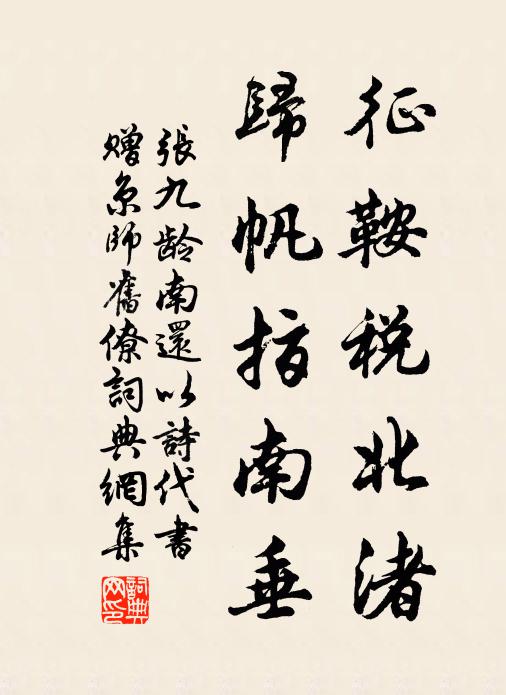 征鞍稅北渚
歸帆指南垂
張九龄南還以詩代書
赠京師舊僚詞典網集
詞典网印